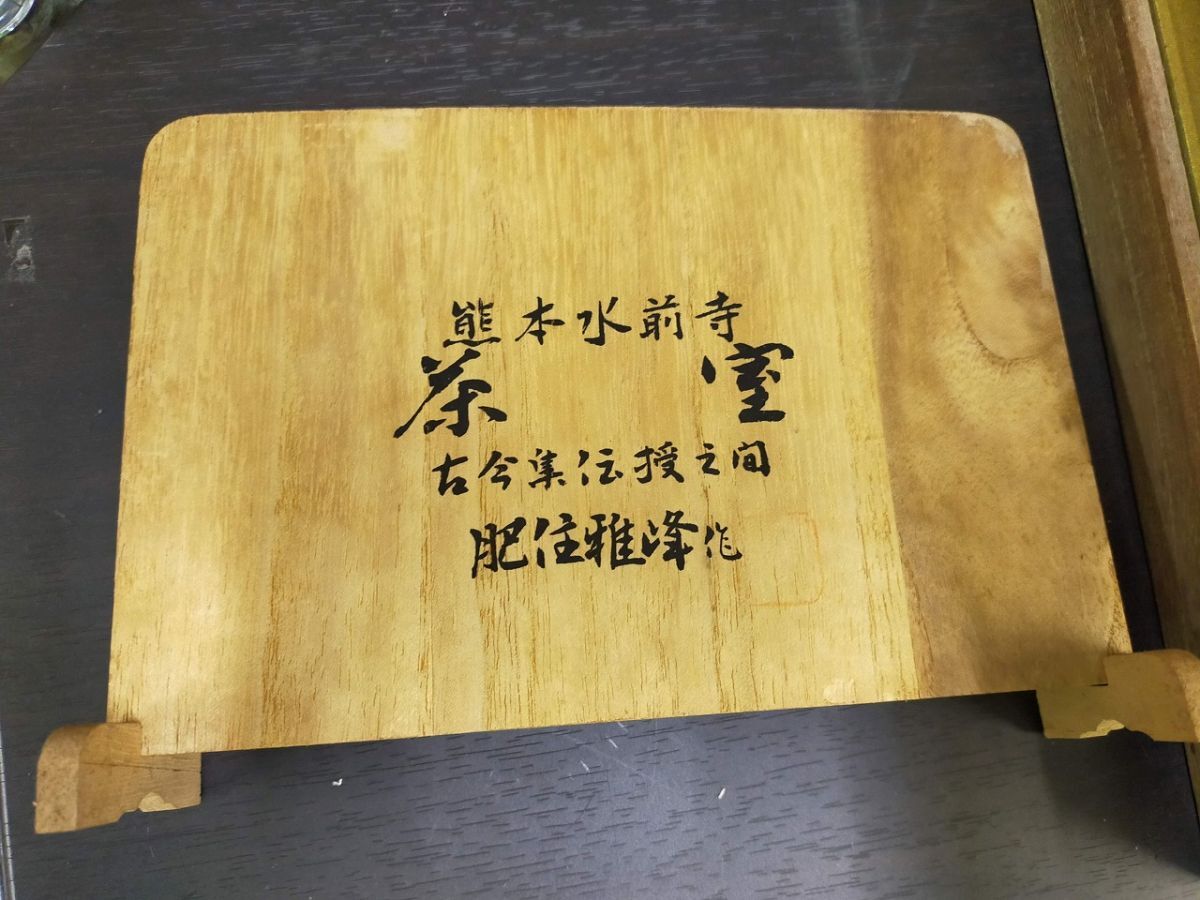 熊本水前寺
茶室
古今集伝授之間
肥住雅峰作